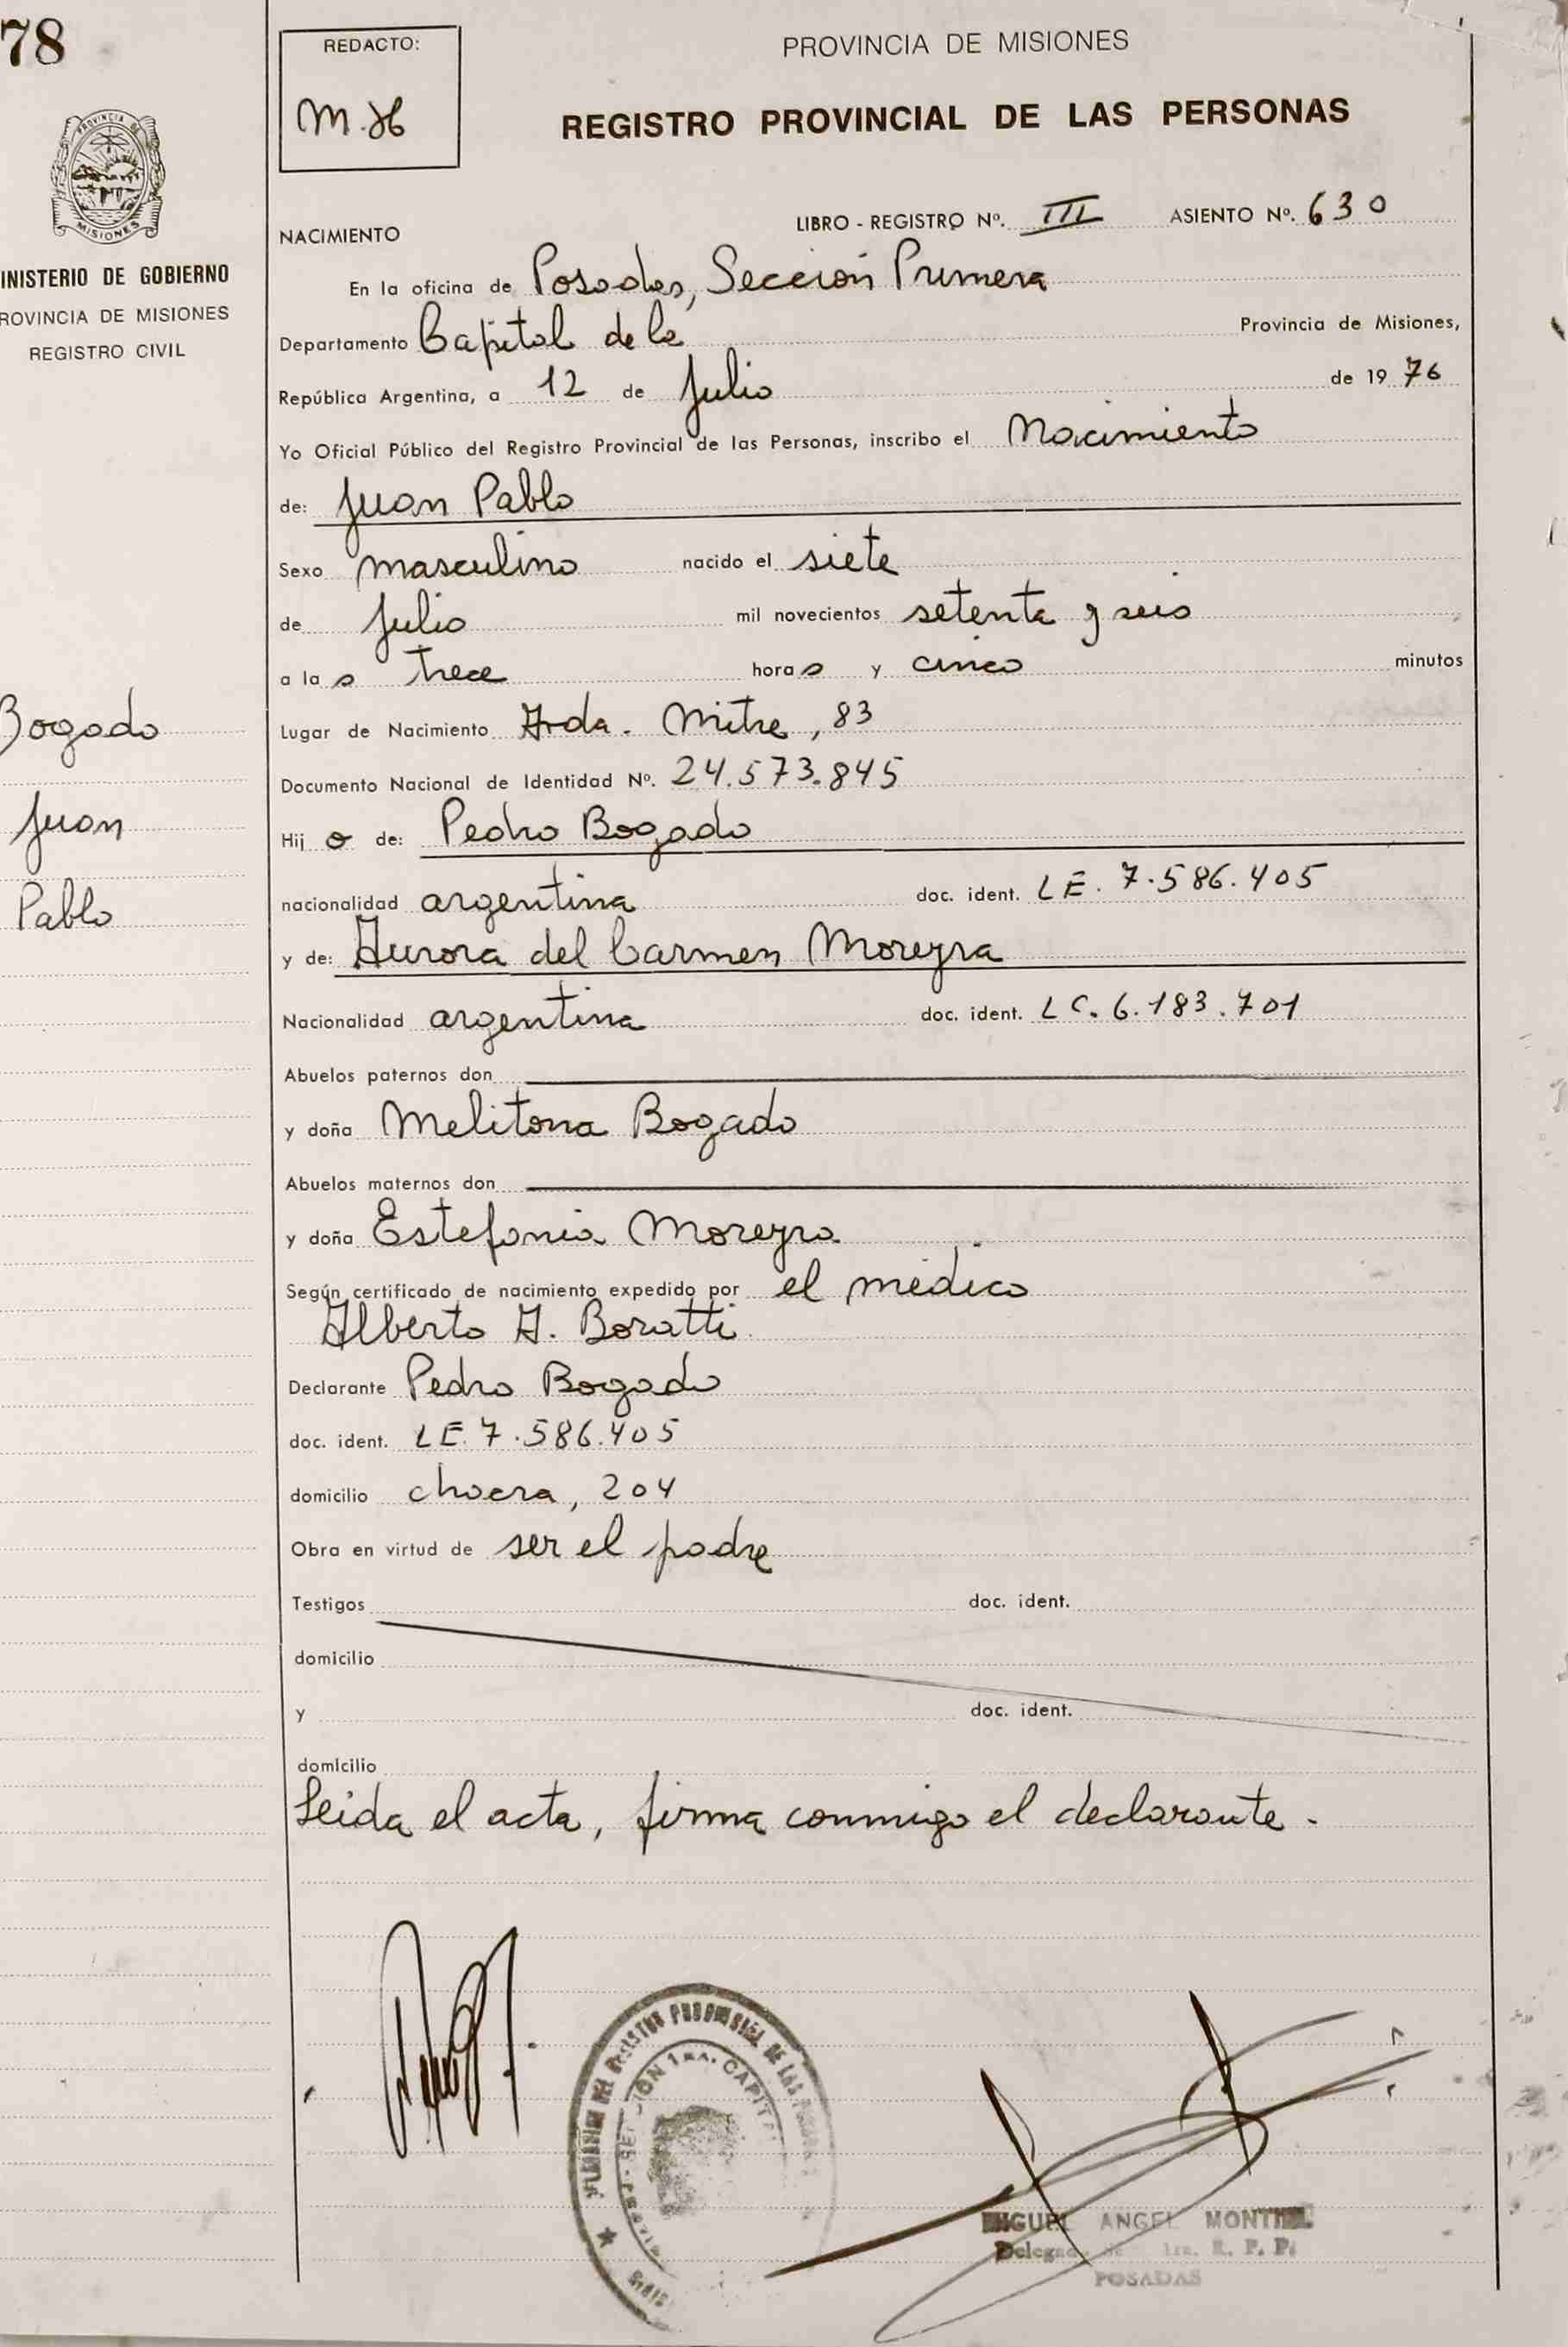 78
REDACTO:
M.H
PROVINCIA DE MISIONES
REGISTRO PROVINCIAL DE LAS PERSONAS
PROVINCIA DE
MISIONES
INISTERIO DE GOBIERNO
ROVINCIA DE MISIONES
REGISTRO CIVIL
LIBRO - REGISTRO Nº. III ASIENTO Nº. 630
NACIMIENTO
En la oficina de Posadas, Sección Primera
Departamento Capital de la Provincia de Misiones,
República Argentina, a 12 de Julio de 19 76
Yo Oficial Público del Registro Provincial de las Personas, inscribo el Nacimiento
de: Juan Pablo
Sexo masculino nacido el siete
de Julio mil novecientos setenta y seis
a la s trece hora s y cinco minutos
Lugar de Nacimiento Avda. Mitre, 83
Documento Nacional de Identidad Nº. 24.573.845
Hij o de: Pedro Bogado
nacionalidad argentina doc. ident. LE. 7.586.405
y de: Aurora del Carmen Moreyra
Nacionalidad argentina doc. ident. LC. 6.183.701
Abuelos paternos don
y doña Melitona Bogado
Abuelos maternos don
y doña Estefania Moreyra
Según certificado de nacimiento expedido por el médico
Alberto A. Boratti
Declarante Pedro Bogado
doc. ident. LE. 7.586.405
domicilio chacra, 204
Obra en virtud de ser el padre
Testigos doc. ident.
domicilio
y doc. ident.
domicilio
Leida el acta, firma conmigo el declarante.
Bogado
Juan
Pablo
DEL REGISTRO PROVINCIAL DE LAS
SECCION 1ra. CAPITAL
MIGUEL ANGEL
Delegado 1ra. R. P. P.
POSADAS